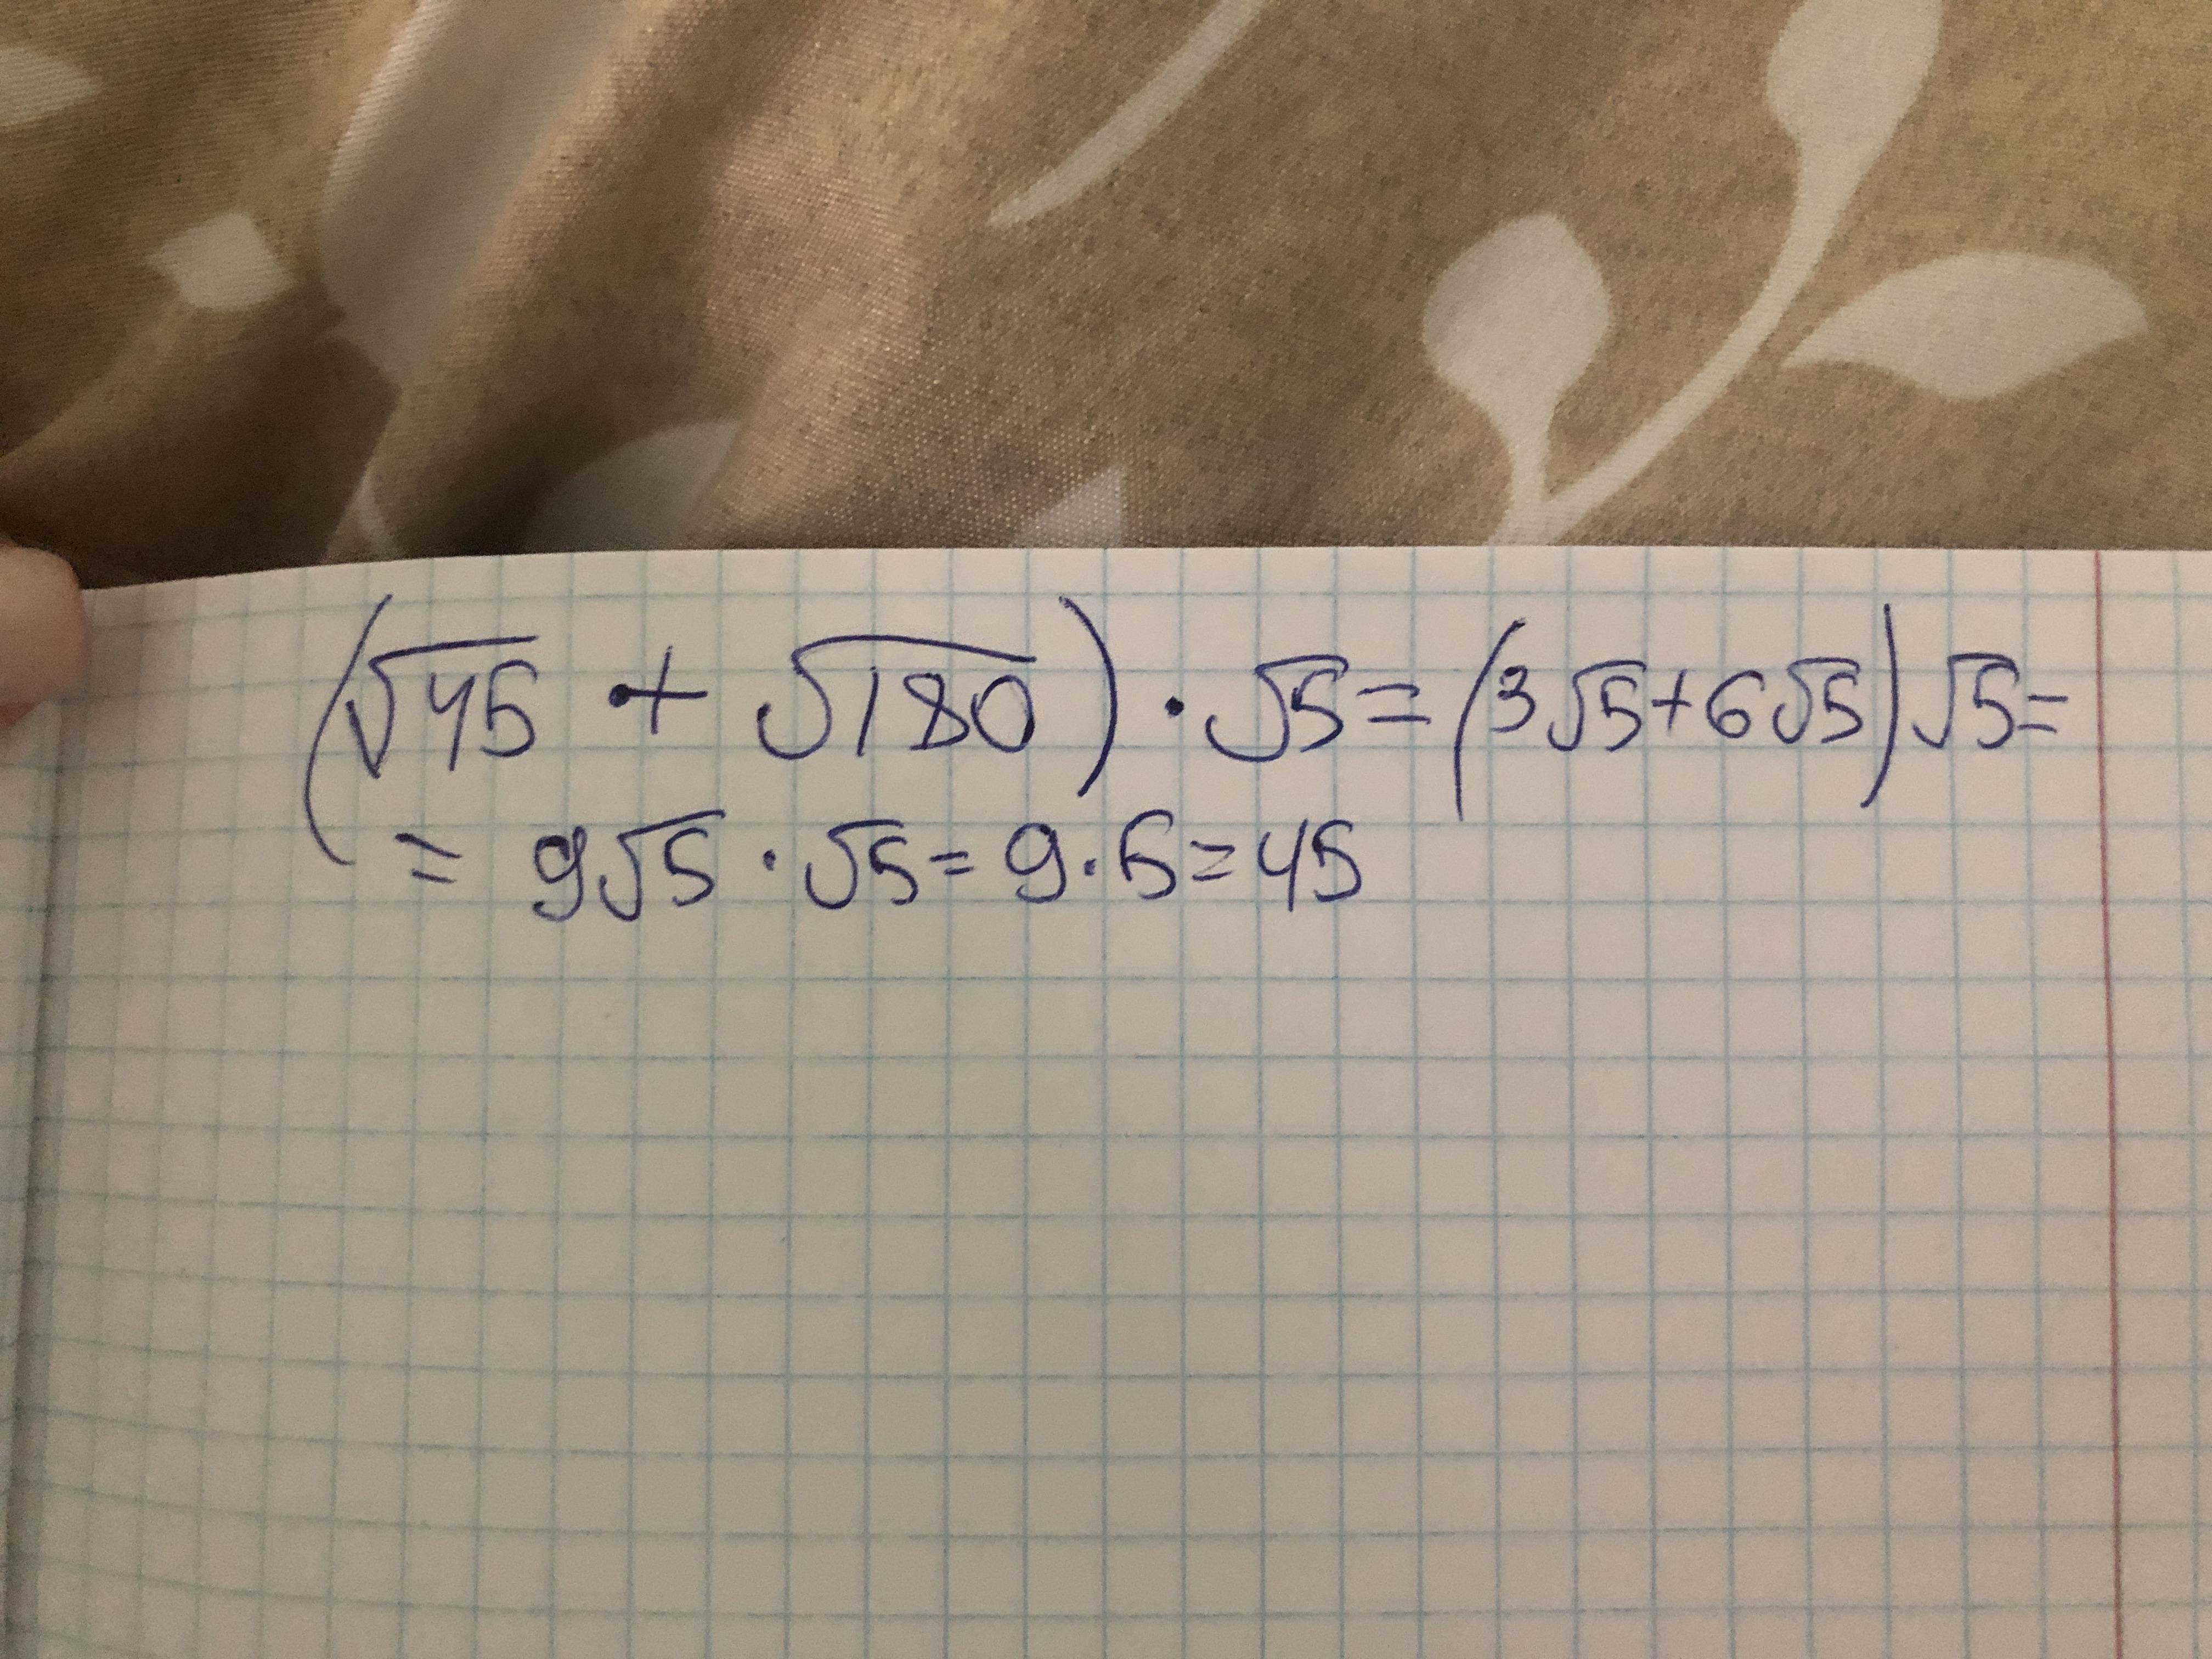 (√45 + √180) · √5 = (3√5+6√5)√5=
= 9√5 · √5 = 9·5=45